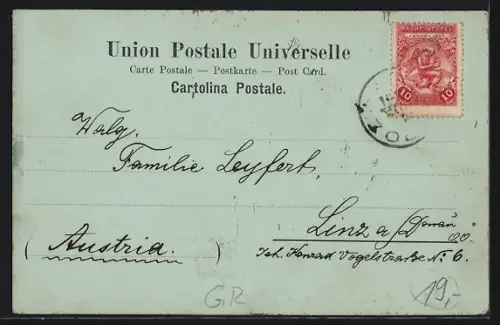 Union Postale Universelle
Carte Postale — Postkarte — Post Card.
Cartolina Postale.
10 10
Familie Leyfert,
Linz a/Donau
(Austria.)
Joh. Konrad Vogelstraße No 6.
G.R
19,-